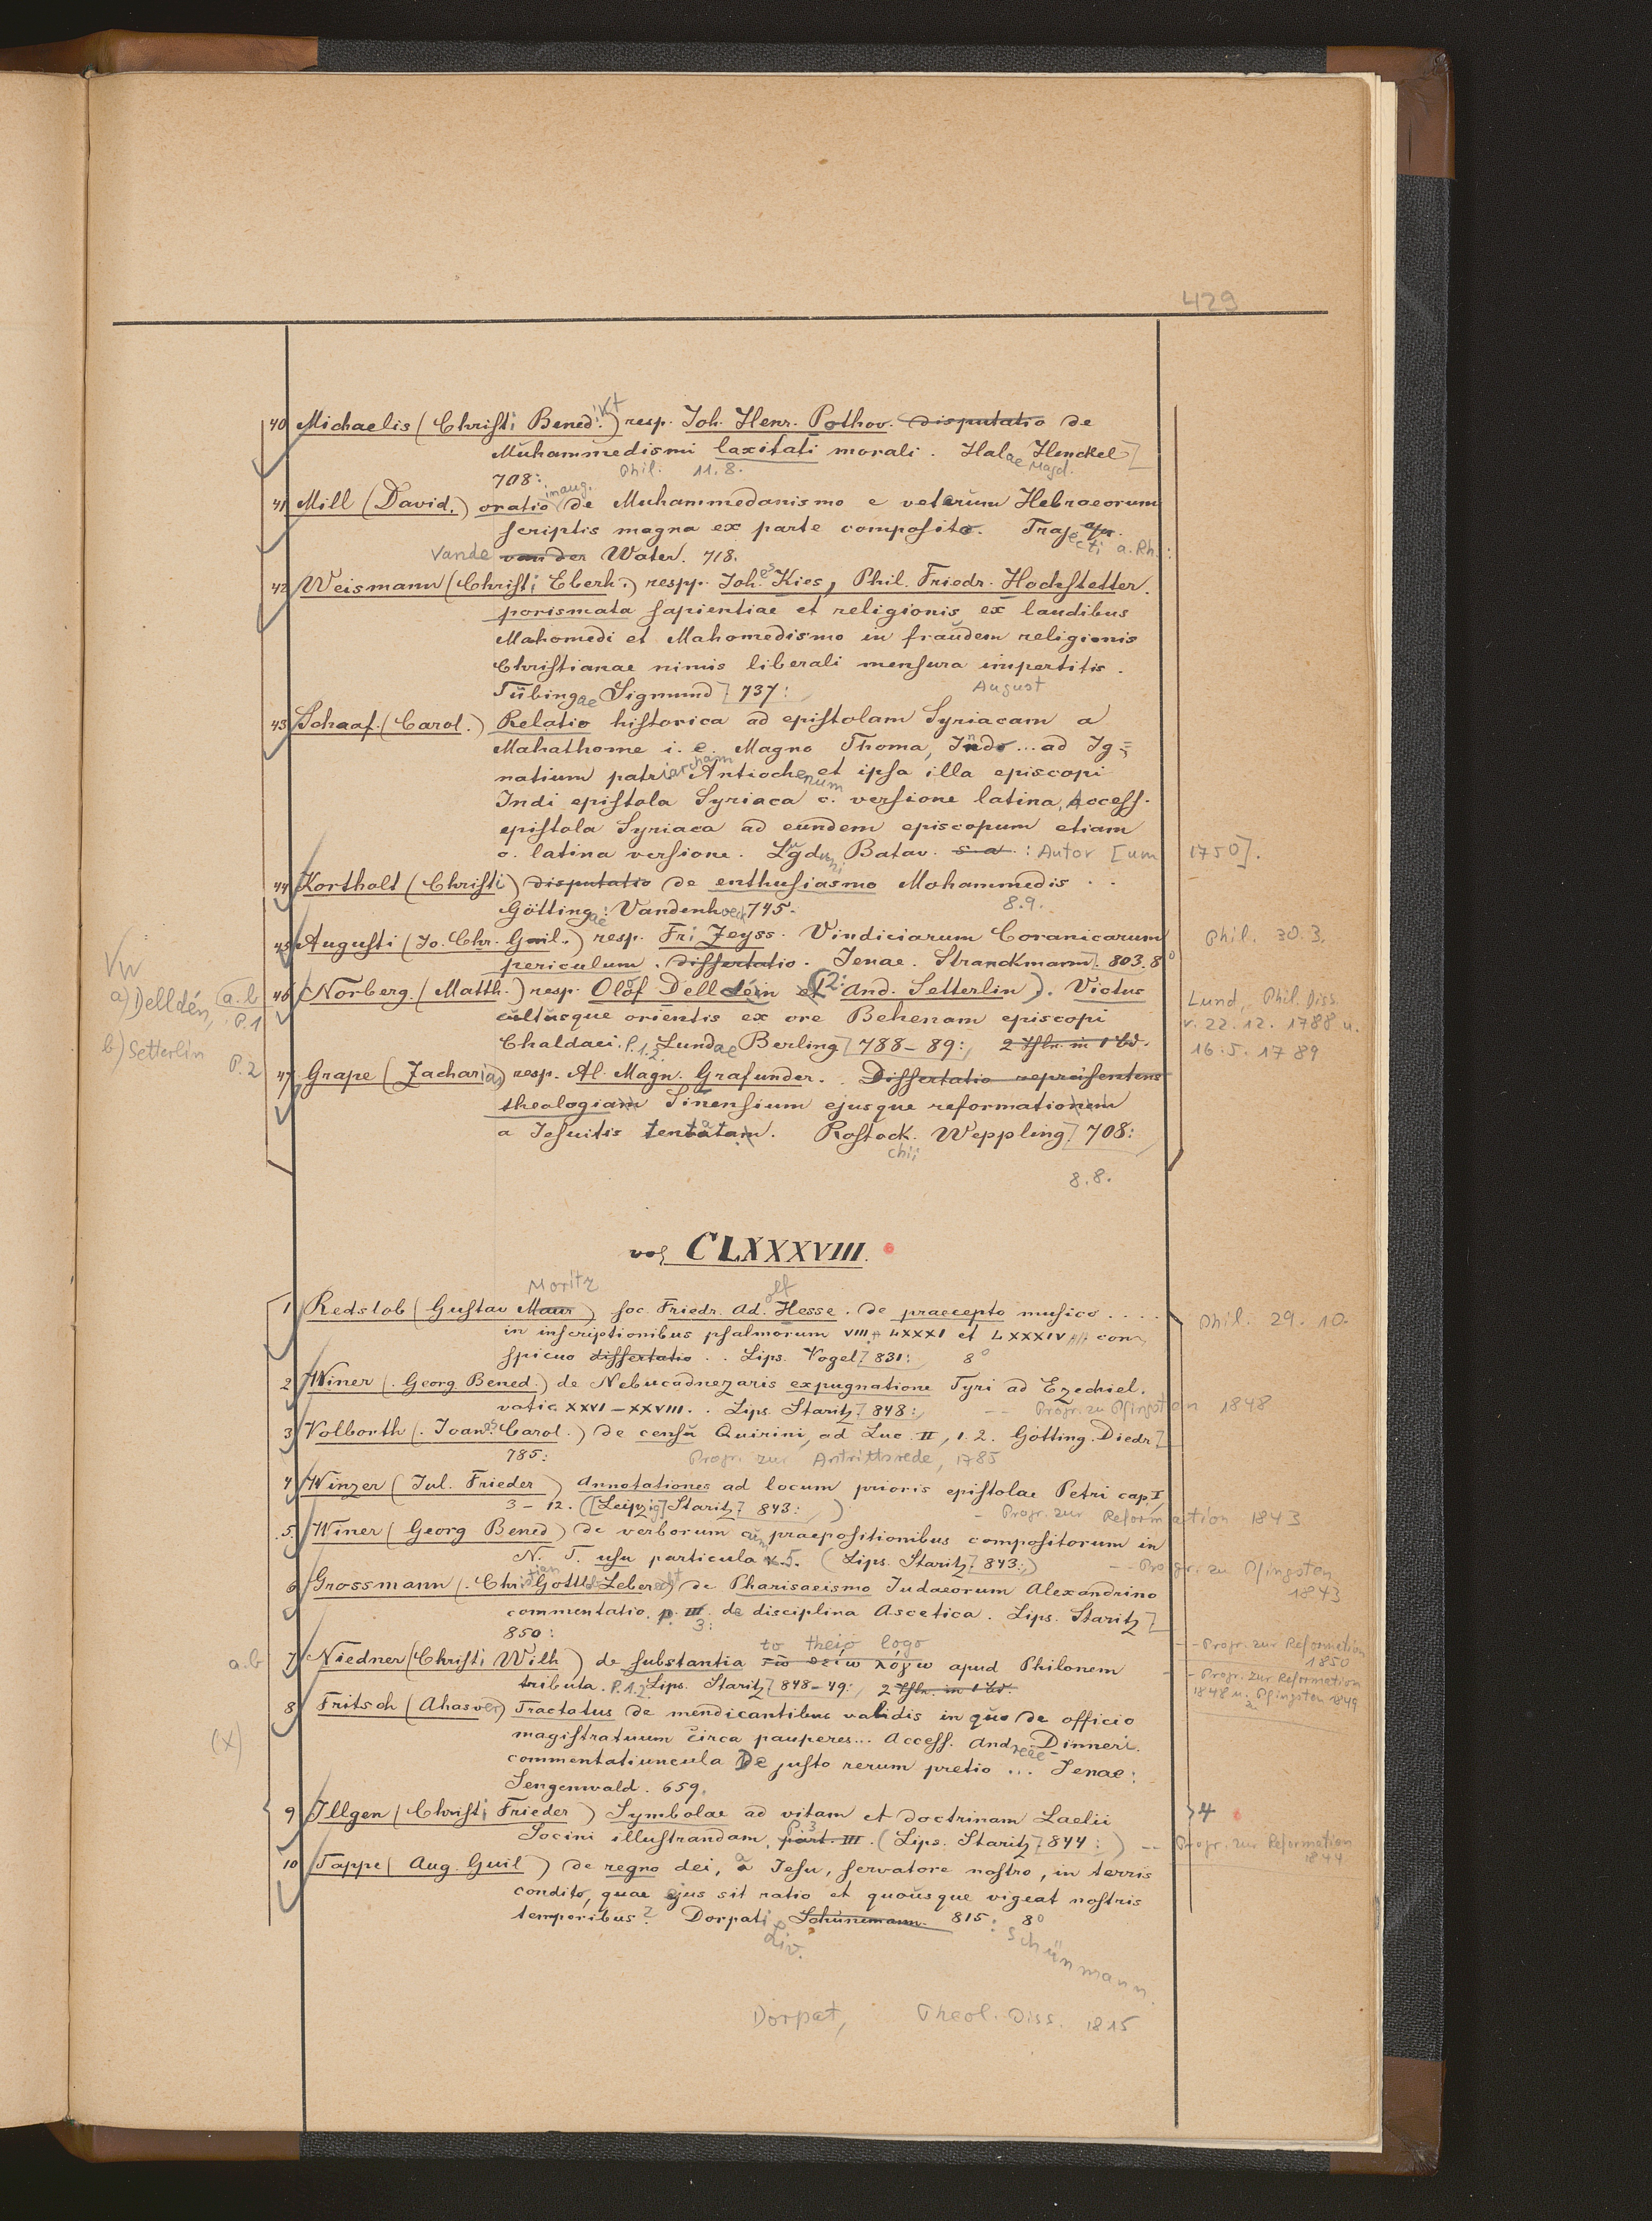 429
40 Michaelis (Christi Bened.ikt) resp. Joh. Henr. Pothov. disputatio de
Muhammedismi laxitati morali. Halae Magd. Henckel]
708: Phil. 11. 8.
41 Mill (David.) oratio inaug. de Muhammedanismo e veterum Hebraeorum
scriptis magna ex parte composito. Trajecti a. Rh.:
Vande van der Water. 718.
42 Weismann (Christi Eberh.) respp. Joh.es Kies, Phil. Friedr. Hochstetter.
porismata sapientiae et religionis ex laudibus
Mahomedi et Mahomedismo in fraudem religionis
Christianae nimis liberali mensura impertitis.
Tübingae Sigmund] 737: August
43 Schaaf. (Carol.) Relatio historica ad epistolam Syriacam a
Mahathome i. e. Magno Thoma, Indo ... ad Ig=
natium patriarcham Antiochenum et ipsa illa episcopi
Indi epistola Syriaca c. versione latina, Access.
epistola Syriaca ad eundem episcopum etiam
c. latina versione. Lugduni Batav. s. a. : Autor [um 1750].
44 Kortholt (Christi) disputatio de enthusiasmo Mohammedis . .
Göttingae: Vandenhoeck 745. 8. 9.
45 Augusti (Jo. Chr. Guil.) resp. Fri Zeyss. Vindiciarum Coranicarum Phil. 30. 3.
periculum. dissertatio. Jenae. Stranckmann]. 803. 8°
Vw
a) Delldén, a.b P. 1
46 Norberg. (Matth.) resp. Olof Delldén et (2: And. Setterlin). Victus Lund, Phil. Diss.
cultusque orientis ex ore Behenam episcopi v. 22. 12. 1788 u.
b) Setterlin P. 2
Chaldaei. P. 1. 2. Lundae Berling] 788-89:, 2 Thle. in 1 Bd. 16. 5. 1789
47 Grape (Zacharias) resp. Al. Magn. Grafunder. Dissertatio repraesentens
theologiam Sinensium ejusque reformationem
a Jesuitis tentatam. Rostockchii Weppling] 708:
8. 8.
vol CLXXXVIII.
1 Redslob (Gustav Maur Moritz) soc. Friedr. Ad.olf Hesse. de praecepto musico .... Phil. 29. 10.
in inscriptionibus psalmorum VIII, LXXXI et LXXXIV con
spicuo dissertatio .. Lips. Vogel] 831: 8°
2 Winer (. Georg Bened.) de Nebucadnezaris expugnatione Tyri ad Ezechiel.
vatic. XXVI-XXVIII. . Lips. Staritz] 848:, -- Progr. zu Pfingsten 1848
3 Volborth (. Joanes Carol.) de censu Quirini, ad Luc. II, 1. 2. Götting. Diedr]
785: Progr. zur Antrittsrede, 1785
4 Winzer (Jul. Frieder) Annotationes ad locum prioris epistolae Petri cap. I,
3-12. ([Leipzig] Staritz] 843: ,) - Progr. zur Reformation 1843
5. Winer (Georg Bened) de verborum cum praepositionibus compositorum in
N. T. usu particula 5. (Lips. Staritz] 843:,) -- Progr. zu Pfingsten 1843
6 Grossmann (. Christian Gottlob Leberecht) de Pharisaeismo Judaeorum Alexandrino
commentatio. p. III. P. 3: de disciplina Ascetica. Lips. Staritz]
850: -- Progr. zur Reformation 1850
a.b 7 Niedner (Christi Wilh) de substantia τῷ θείῳ λόγῳ to theio logo apud Philonem
tributa. P. 1. 2. Lips. Staritz] 848-49:, 2 Thle. in 1 Bd. - Progr. zur Reformation 1848 u. zu Pfingsten 1849
8 Fritsch (Ahasver) Tractatus de mendicantibus validis in quo de officio
(x) magistratuum circa pauperes... Access. Andreae Dinneri.
commentatiuncula De justo rerum pretio ... Jenae:
Sengenwald. 659.
9 Illgen (Christi Frieder) Symbolae ad vitam et doctrinam Laelii 4
Socini illustrandam, part. III. P. 3 (Lips. Staritz] 844:) -- Progr. zur Reformation 1844
10 Tappe (Aug. Guil) de regno dei, a Jesu, servatore nostro, in terris
condito, quae ejus sit ratio et quousque vigeat nostris
temporibus? Dorpati Liv. Schünmann. 815: 8°
Schünmann
Dorpat, Theol. Diss. 1815